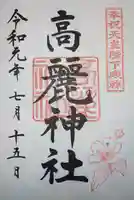 奉祝天皇陛下御即位
高麗神社
令和元年七月十五日